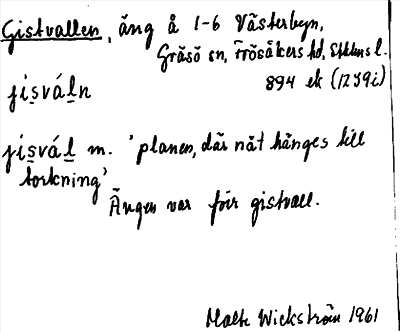 Gistvallen, äng å 1-6 Västerbyn,
Gräsö sn, Frösåkers hd, Sthlms l.
894 ek (12 I 9i)
jisváln
jisvál m. 'planen, där nät hänges till
torkning'
Ängen var förr gistvall.
Malte Wickström 1961